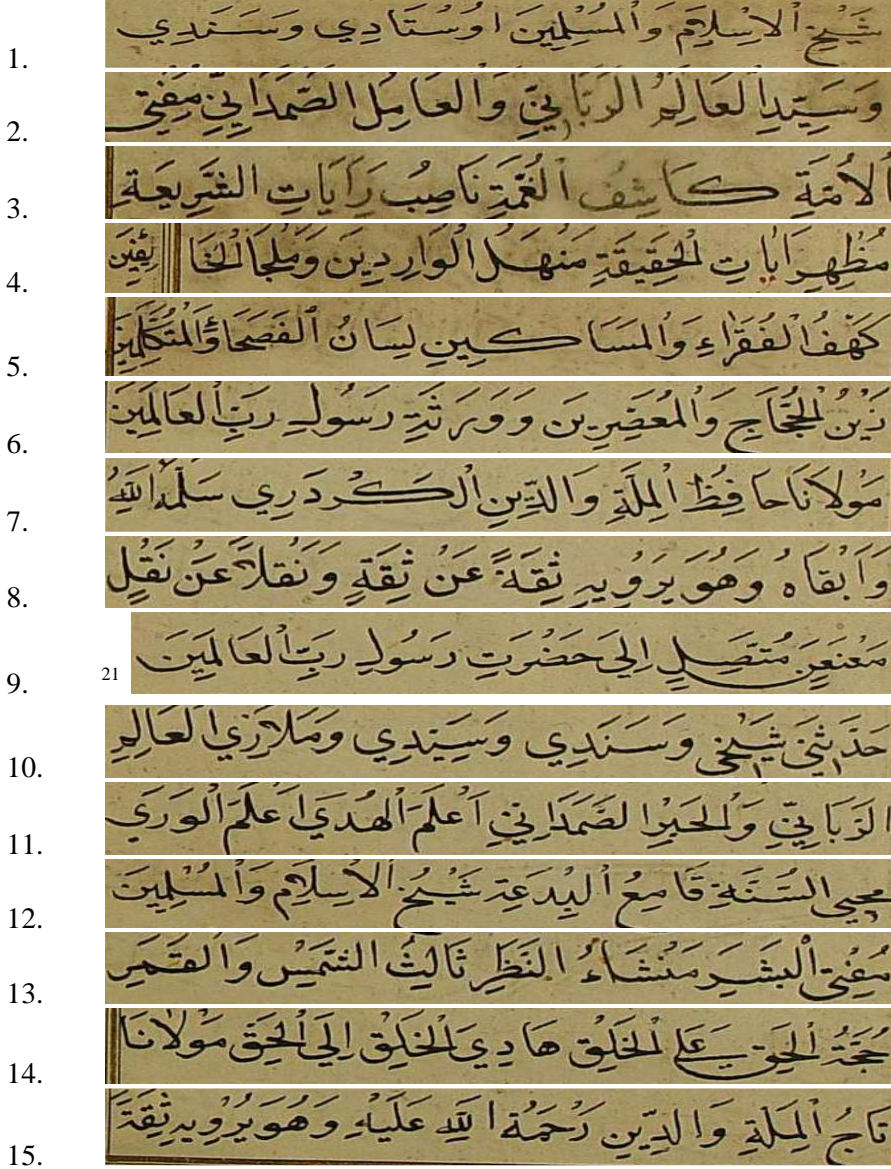 1. شَيْخِ الْاِسْلَامِ وَالْمُسْلِمِينَ اوُسْتَادِي وَسَنَدِي
2. وَسَيِّدِ الْعَالِمُ الرَّبَّانِيِّ وَالعَامِلِ الصَّمَدَانِيِّ مُفْتِي
3. اَلْاُمَّةِ كَاشِفُ الْغُمَّةِ نَاصِبُ رَآيَاتِ الشَّرِيعَةِ
4. مُظْهِرِ اٰيَاتِ الْحَقِيقَةِ مَنْهَلُ الْوَارِدِينَ وَمَلْجَأ الْخَا ئِفِينَ
5. كَهْفُ الْفُقَرَاءِ وَالْمَسَاكِينِ لِسَانُ الْفَصَحَاءِ وَالْمُتَكَلِّمِينَ
6. زَيْنُ الْحُجَّاجِ وَالْمُعَصِّرِينَ وَوَرَثَةِ رَسُولِ رَبِّ الْعَالَمِينَ
7. مَوْلَانَا حَافِظُ الْمِلَّةِ وَالدِّينِ الْكَرْدَرِي سَلَّمَهُ اللّٰهُ
8. وَاَبْقَاهُ وَهُوَ يَرْوِيهِ ثِقَةً عَنْ ثِقَةٍ وَنَقْلاً عَنْ نَقْلٍ
9. 21 مَعْنَعَنٍ مُتَّصِلٍ اِلَي حَضْرَتِ رَسُولِ رَبِّ الْعَالَمِينَ
10. حَدَّثَنِي شَيْخِي وَسَنَدِي وَسَيِّدِي وَمَلَازِي الْعَالِمِ
11. الرَّبَّانِيِّ وَالْحَبْرِ الصَّمَدَانِيِّ اَعْلَمَ الْهُدَي اَعْلَمَ الْوَرَي
12. مُحْيِي السُّنَّةِ قَامِعُ الْبِدْعَةِ شَيْخُ الْاِسْلَامِ وَالْمُسْلِمِينَ
13. مُفْتِي الْبَشَرِ مَنْشَاءُ النَّظَرِ ثَالِثُ الشَّمْسِ وَالْقَمَرِ
14. حُجَّةُ الْحَقِّ عَلَي الْخَلْقِ هَادِيَ الْخَلْقِ اِلَي الْحَقِّ مَوْلَانَا
15. تَاجُ الْمِلَّةِ وَالدِّينِ رَحْمَةُ اللّٰهِ عَلَيْهِ وَهُوَ يَرْوِيهِ ثِقَةً